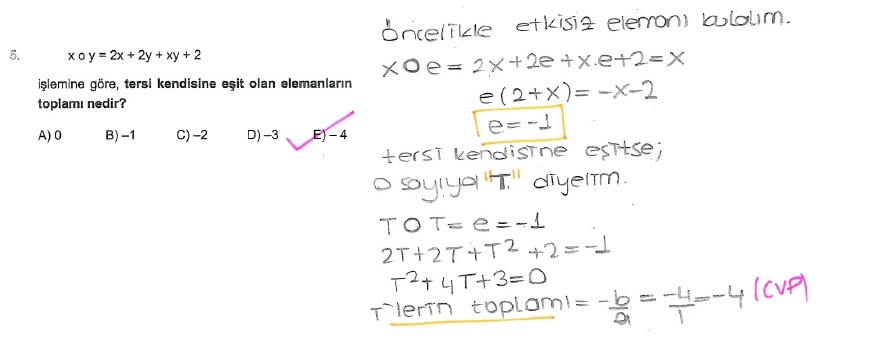 5.
x o y = 2x + 2y + xy + 2
işlemine göre, tersi kendisine eşit olan elemanların
toplamı nedir?
A) 0 B) –1 C) –2 D) –3 E) – 4
Öncelikle etkisiz elemanı bulalım.
x o e = 2x+2e+x.e+2=x
e(2+x)= -x-2
e=-1
tersi kendisine eşitse;
o sayıya "T" diyelim.
T O T= e = -1
2T+2T+T² +2=-1
T²+4T+3=0
T'lerin toplamı= -b/a = -4/1 = -4 (CVP)